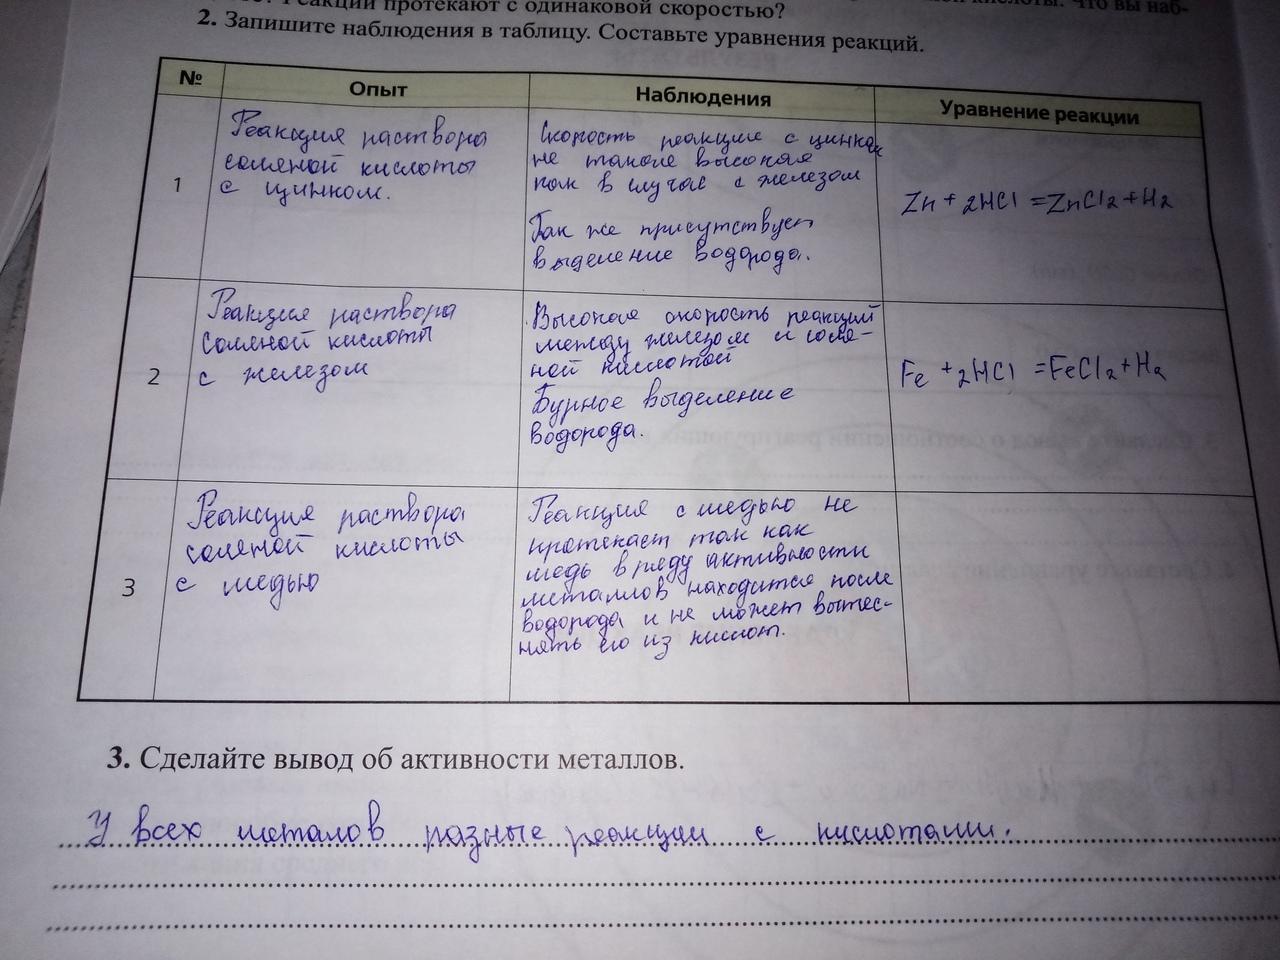 Реакции протекают с одинаковой скоростью?
кислоты. Что вы наб-
2. Запишите наблюдения в таблицу. Составьте уравнения реакций.
№ Опыт Наблюдения Уравнение реакции
1
Реакция раствора
соляной кислоты
с цинком.
Скорость реакцие с цинком
не такая высокая
как в случае с железом
Так же присутствует
выделение водорода.
Zn + 2HCl = ZnCl2 + H2
2
Реакция раствора
соляной кислоты
с железом
Высокая скорость реакций
между железом и соля-
ной кислотой
Бурное выделение
водорода.
Fe + 2HCl = FeCl2 + H2
3
Реакция раствора
соляной кислоты
с медью
Реакция с медью не
протекает так как
медь в ряду активности
металлов находится после
водорода и не может вытес-
нять его из кислот.
3. Сделайте вывод об активности металлов.
У всех металов разные реакции с кислотами.